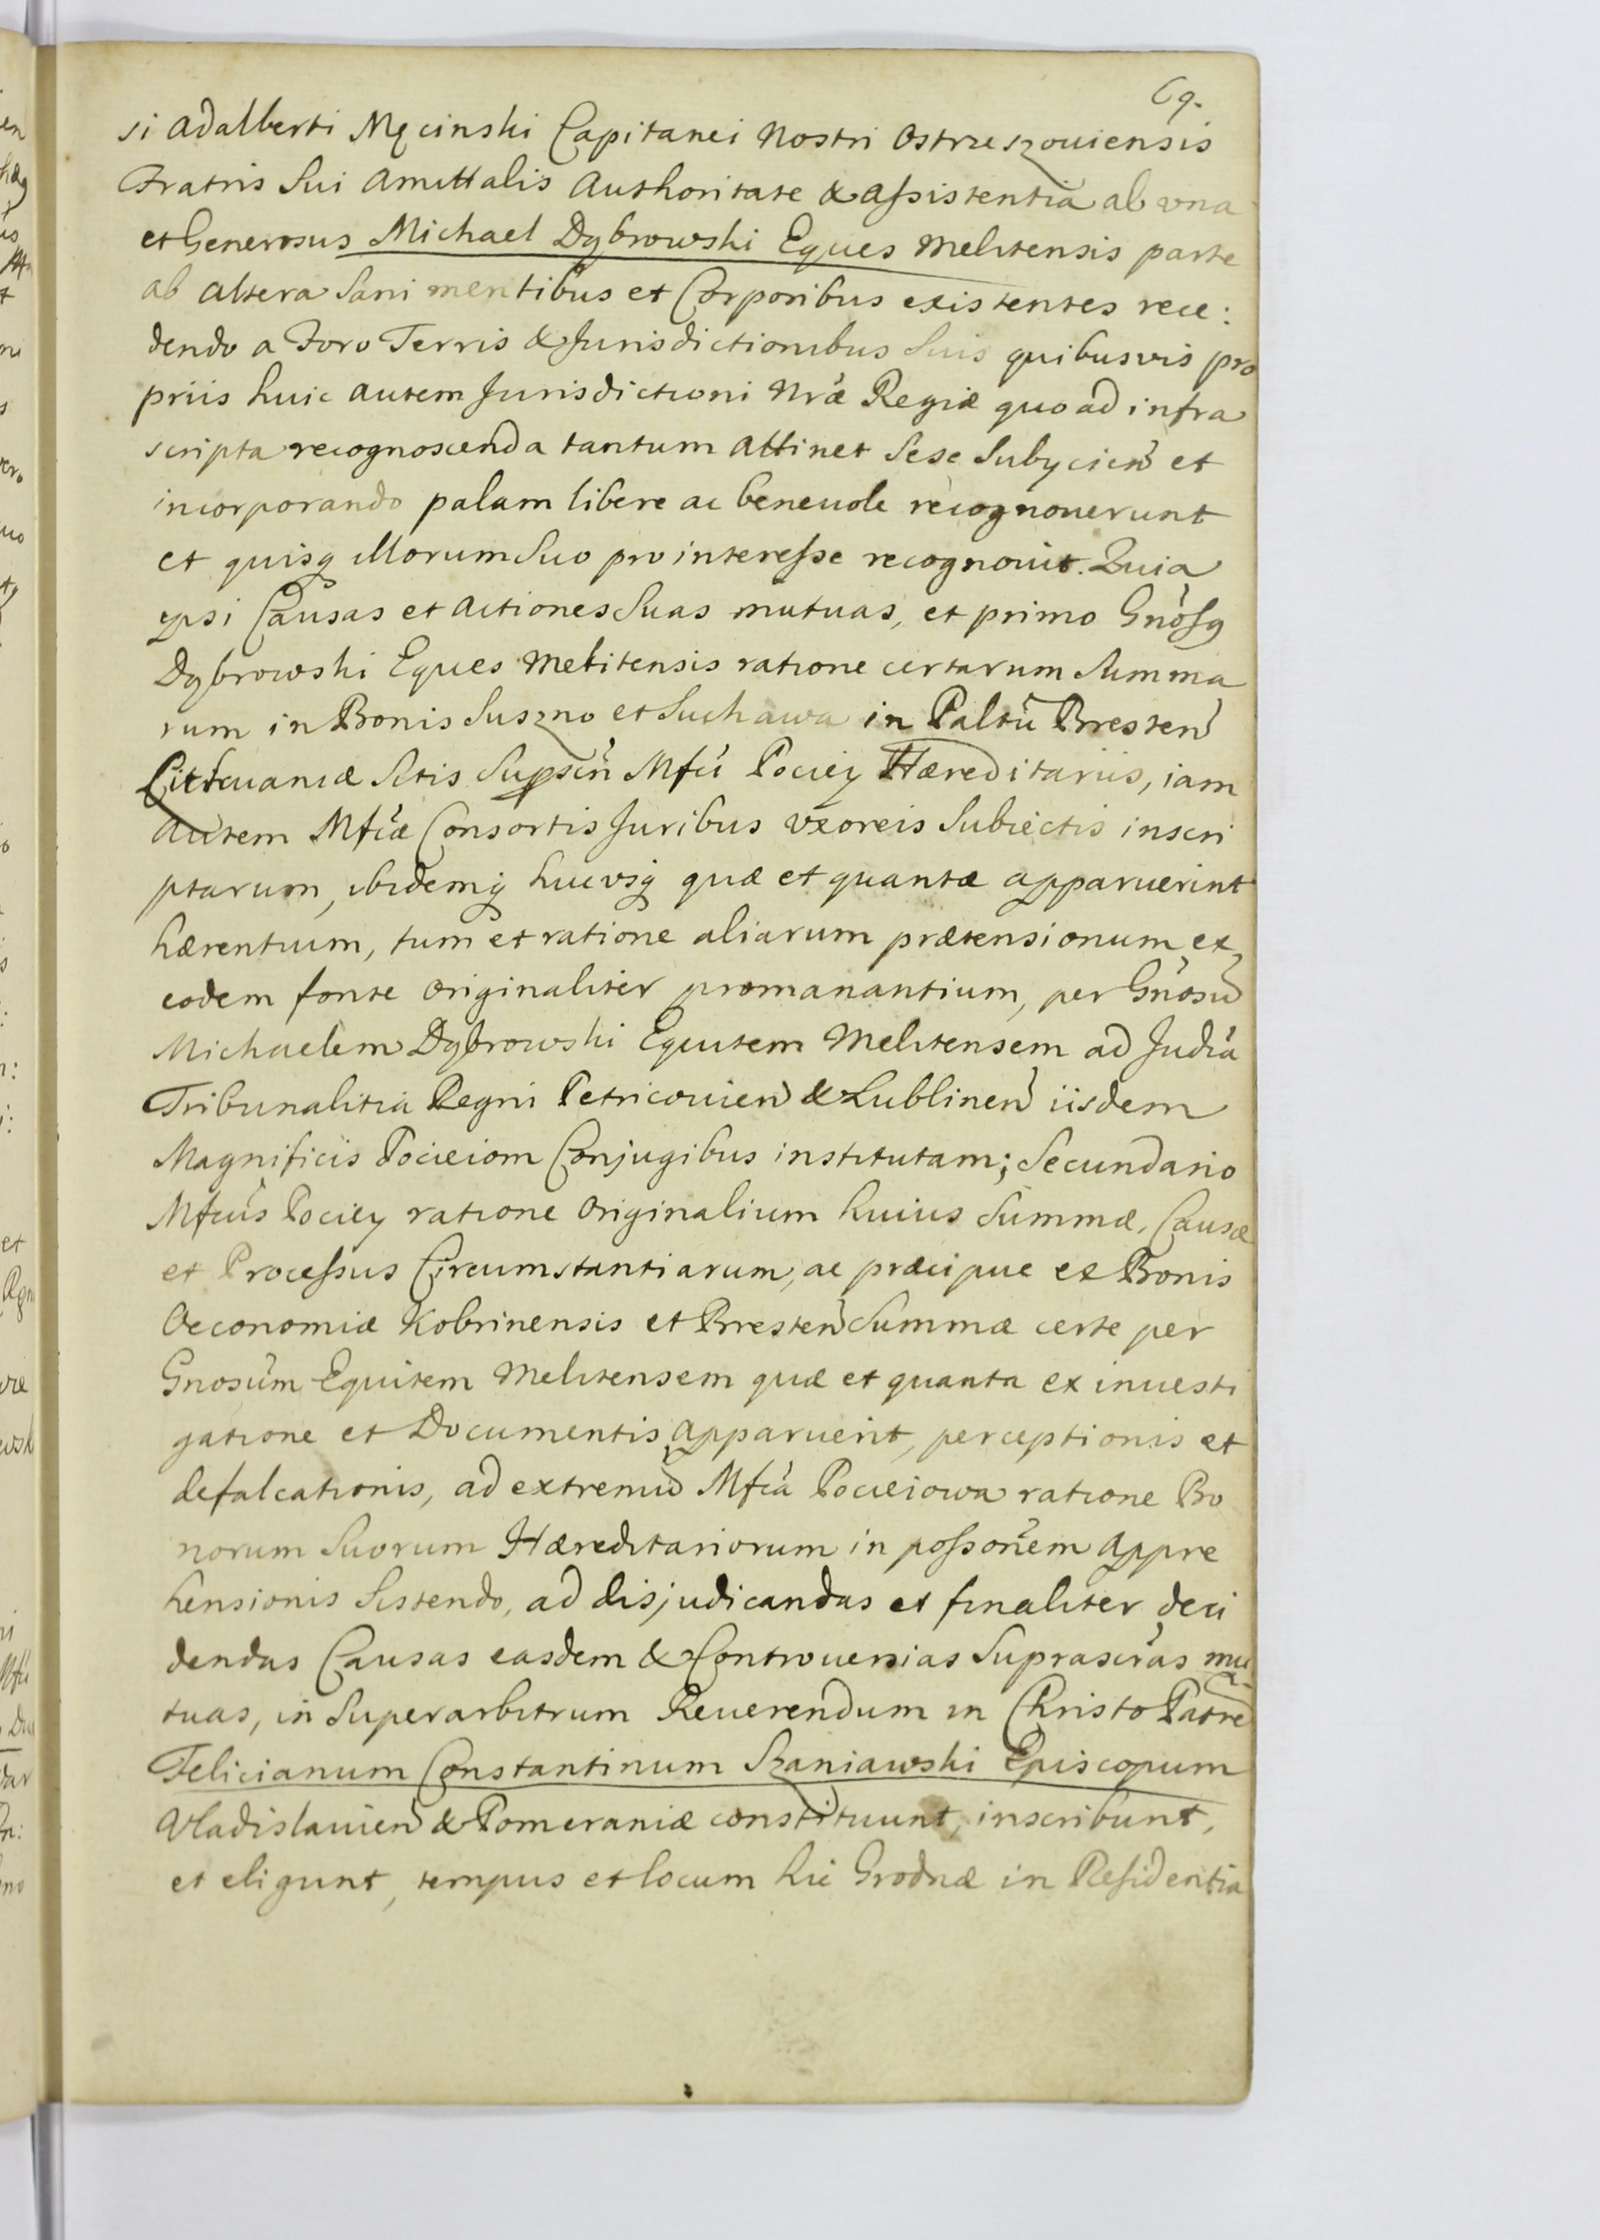 69.
si Adalberti Męcinski Capitanei Nostri Ostrzeszouiensis
Fratris Sui Amittalis Authoritate & Assistentia ab vna
et Generosus Michael Dąbrowski Eques Melitensis parte
ab altera Sani mentibus et Corporibus existentes rece:
dendo a Foro Terris & Jurisdictionibus Suis quibusvis pro
priis huic autem Jurisdictioni Nr̃æ Regiæ quo ad infra
scripta recognoscenda tantum attinet Sese Subycieñ et
incorporando palam libere ac beneuole recognouerunt
et quisq́ illorum Suo pro interesse recognouit. Quia
ipsi Causas et Actiones Suas mutuas, et primo Gnõsq
Dąbrowski Eques Melitensis ratione certarum Summa
rum in Bonis Suszno et Suchawa in Paltũ Bresteñ
Littuaniæ Sitis Supsc̃ri Mfc̃i Pociey Hæreditariis, iam
autem Mfc̃æ Consortis Juribus vxoreis Subiectis inscri
ptarum, ibidemq́ hucvsq́ quæ et quantæ apparuerint
hærentium, tum et ratione aliarum prætensionum ex
eodem fonte originaliter promanantium, per Gnõsũ
Michaelem Dąbrowski Equitem Melitensem ad Judĩa
Tribunalitia Regni Petricouieñ & Lublineñ iisdem
Magnificis Pocieiom Conjugibus institutam; Secundario
Mfcũs Pociey ratione Originalium huius Summæ, Causæ
et Processus Circumstantiarum, ac præcipue ex Bonis
Oeconomiæ Kobrinensis et Bresteñ Summæ certe per
Gnosũm Equitem Melitensem quæ et quanta ex inuesti
gatione et Documentis apparuerit, perceptionis et
defalcationis, ad extremũ Mfc̃a Pocieiowa ratione Bo
norum Suorum Hæreditariorum in possoñem appre
hensionis Sistendo, ad disjudicandas et finaliter deci
dendas Causas easdem & Controuersias Suprascr̃as mu
tuas, in Superarbitrum Reuerendum in Christo Patrẽ
Felicianum Constantinum Szaniawski Episcopum
Vladislauieñ & Pomeraniæ constituunt, inscribunt,
et eligunt, tempus et locum hic Grodnæ in Residentia